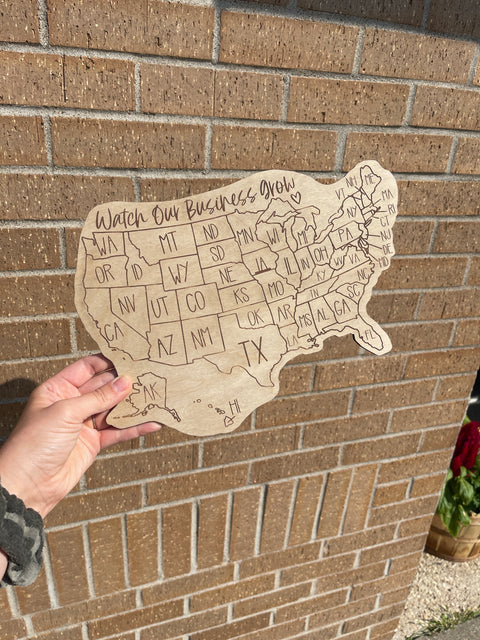 Watch Our Business Grow
WA MT ND MN WI MI VT NH ME
OR ID WY SD IA NY MA
NV UT CO NE IL IN OH PA RI
CA KS MO KY WV VA CT
AZ NM OK AR TN NC NJ
TX LA MS AL GA SC DE
AK HI FL MD